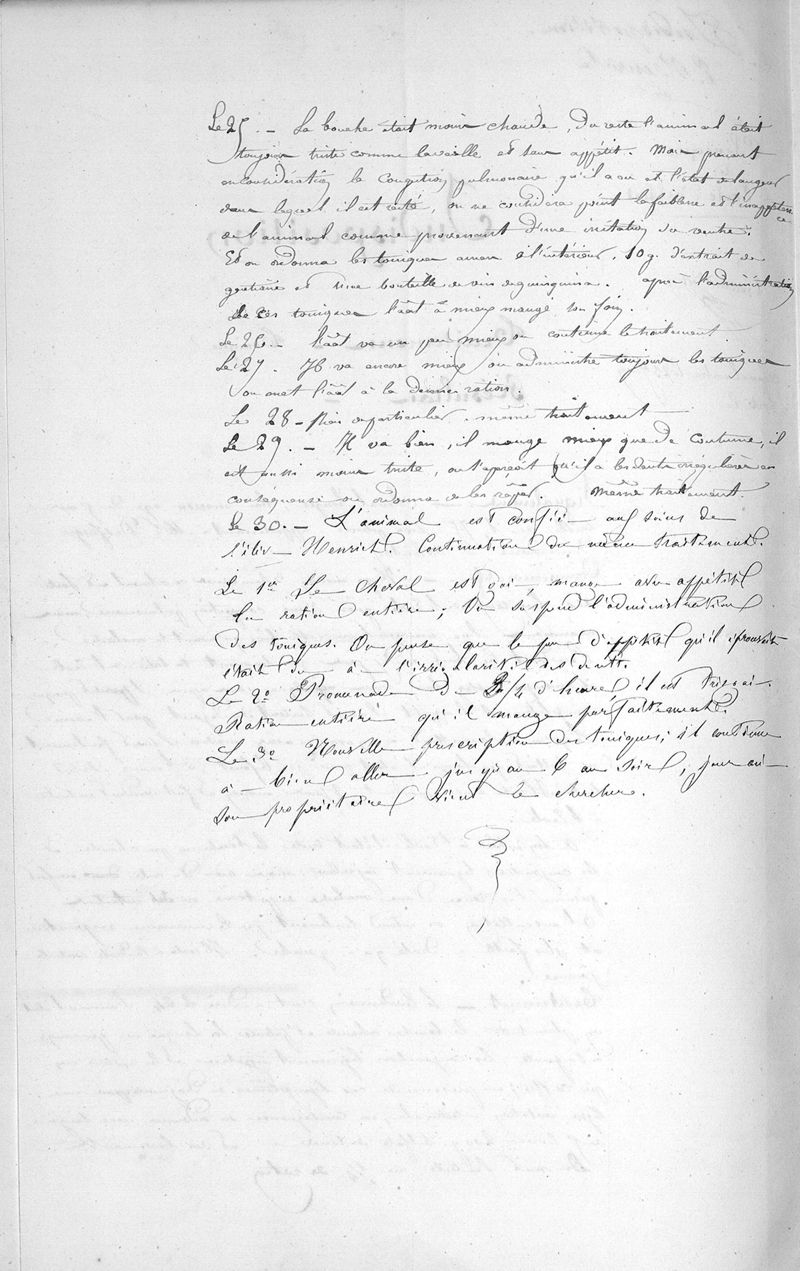 Le 25. — La bouche était moins chaude, du reste l'animal était
toujours triste comme la veille et sans appétit. Mais prenant
en considération la Congestion pulmonaire qu'il a eu et l'état de langueur
dans lequel il est resté, on ne considéra point la faiblesse et l'inappétence
de l'animal comme provenant d'une irritation du ventre.
Et on ordonna les toniques amers à l'intérieur, 10 g. d'extrait de
gentiane et une bouteille de vin de quinquina. après l'administration
de ces toniques l'ââl à mieux mangé son foin.
Le 26 — l'ââl va un peu mieux on continue le traitement.
Le 27. Il va encore mieux on administre toujours les toniques
on met l'ââl à la demie ration.
Le 28 — Rien de particulier, même traitement
Le 29. — Il va bien, il mange mieux que de coutume, il
est aussi moins triste, on s'aperçoit qu'il a les dents irrégulières en
conséquence on ordonna de les râper. Même traitement.
Le 30. — L'animal est confié aux soins de
l'élève Henrich. Continuation du même traitement.
Le 1er Le Cheval est gai, mange avec appétit
la ration entière; On suspend l'administration
des toniques. On pense que le peu d'appétit qu'il éprouvait
était du à l'irrégularité des dents.
Le 2o Promenade de 3/4 d'heure, il est très gai.
Ration entière qu'il mange parfaitement.
Le 3o Nouvelle prescription des toniques; il continue
à bien aller jusqu'au 6 au soir, jour où
son propriétaire vient le chercher.